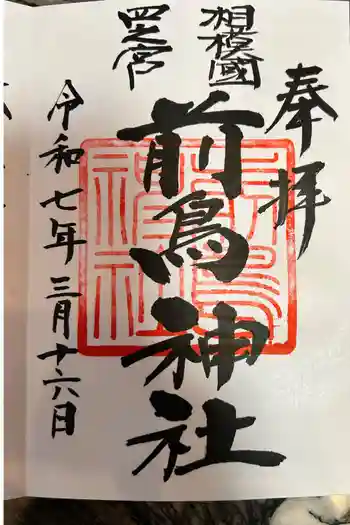 奉拝
相模國
四之宮
前鳥神社
令和七年三月十六日